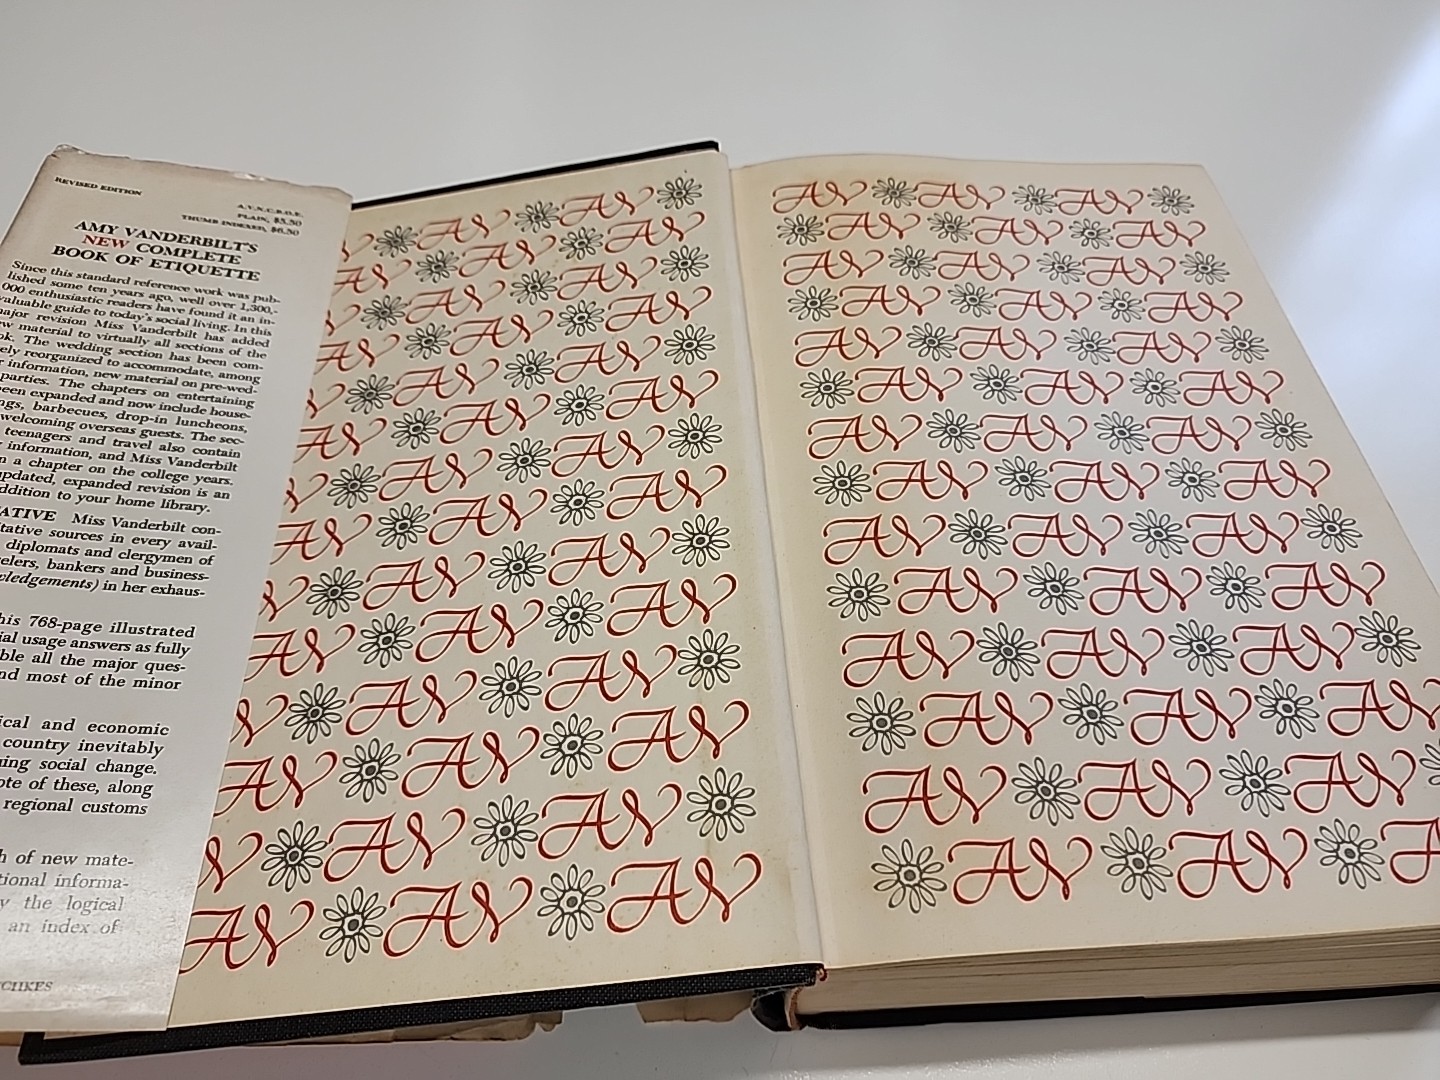 REVISED EDITION
A.V.N.C.B.O.E.
PLAIN, $5.50
THUMB INDEXED, $6.50
AMY VANDERBILT'S
NEW COMPLETE
BOOK OF ETIQUETTE
Since this standard reference work was pub-
lished some ten years ago, well over 1,300,-
000 enthusiastic readers have found it an in-
valuable guide to today's social living. In this
major revision Miss Vanderbilt has added
new material to virtually all sections of the
ok. The wedding section has been com-
ely reorganized to accommodate, among
r information, new material on pre-wed-
parties. The chapters on entertaining
been expanded and now include house-
ngs, barbecues, drop-in luncheons,
welcoming overseas guests. The sec-
teenagers and travel also contain
information, and Miss Vanderbilt
n a chapter on the college years.
updated, expanded revision is an
ddition to your home library.
ATIVE Miss Vanderbilt con-
itative sources in every avail-
diplomats and clergymen of
elers, bankers and business-
wledgements) in her exhaus-
his 768-page illustrated
ial usage answers as fully
ble all the major ques-
nd most of the minor
ical and economic
country inevitably
ing social change.
ote of these, along
regional customs
h of new mate-
tional informa-
y the logical
an index of
CHKES
AV AV AV AV AV AV